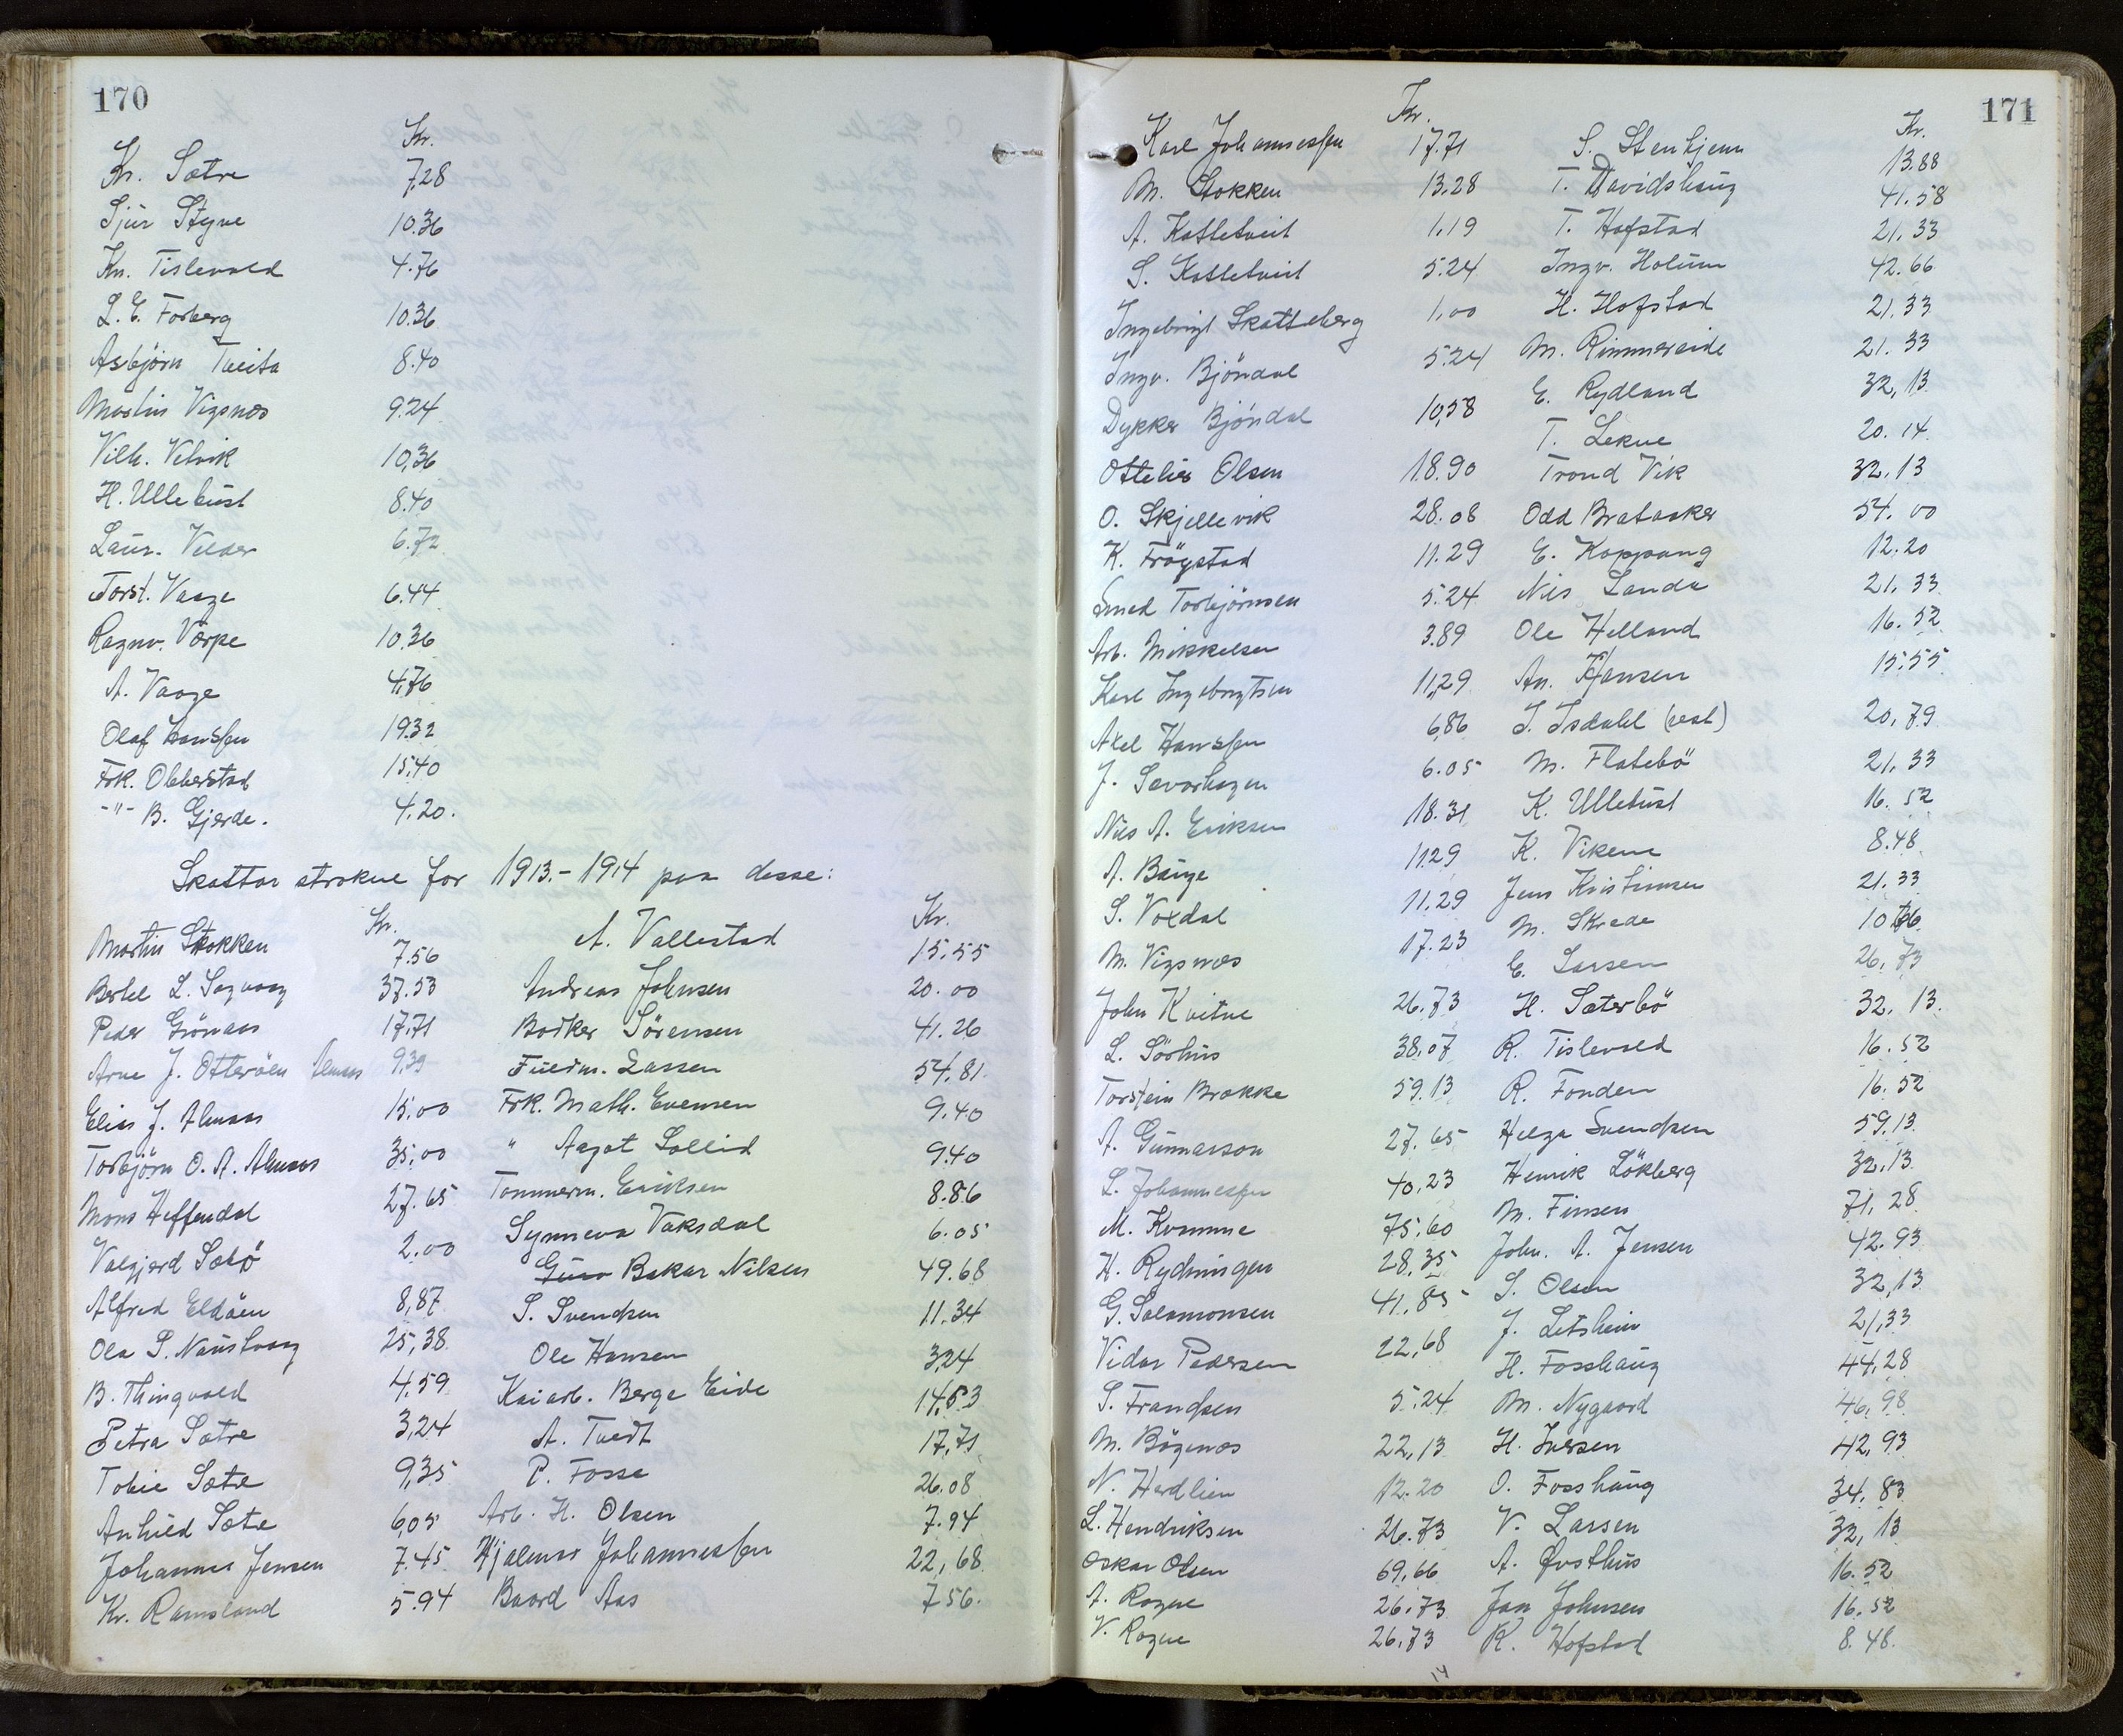 170
Kr.
Kr. Sætre 7,28
Sjur Styve 10.36
Kn. Tislevold 4.76
L. E. Forberg 10.36
Asbjörn Tveita 8.40
Martin Vigsnæs 9.24
Vilh. Vetvik 10,36
H. Ullebust 8.40
Laur. Velder 6.72
Torst. Vaage 6.44
Ragnv. Værpe 10.36
A. Vaage 4,76
Olaf Hanssen 19.32
Frk. Olderstad 15,40
-"- B. Gjerde. 4.20.
Skattar strokne for 1913.-1914 paa desse:
Kr.
Martin Stokken 7.56
Bertel L. Sagvaag 37.53
Peder Grönaas 17,71
Arne J. Otteröen Almaas 9,39
Elias J. Almaas 15.00
Torbjörn O. A. Almaas 35,00
Mons Heffendal 27.65
Valgjerd Sæbö 2.00
Alfred Eldöen 8,87
Ola P. Naustvaag 25,38
B. Thingvold 4,59
Petra Sætre 3,24
Tobie Sætre 9,35
Anhild Sætre 6,05
Johannes Jensen 7.45
Kr. Ramsland 5.94
Kr.
A. Vallestad 15.55
Andreas Johnsen 20.00
Bödker Sörensen 41.26
Fuldm. Lassen 54,81
Frk. Math. Evensen 9.40
" Aagot Sollid 9.40
Tömmerm. Eriksen 8.86
Synneva Vaksdal 6.05
Guro Bakar Nilsen 49.68
S. Svendsen 11.34
Ole Hansen 3,24
Kaiarb. Berge Eide 14,53
A. Tvedt 17,71
P. Fosse 26.08
Arb. H. Olsen 7.94
Hjalmar Johannessen 22,68
Baard Aas 7.56.
171
Kr.
Karl Johannessen 17.71
M. Stokken 13.28
A. Katletveit 1,19
S. Katletveit 5.24
Ingebrigt Skatteberg 1,00
Ingv. Bjöndal 5.24
Dykker Bjöndal 10,58
Ottelies Olsen 18.90
O. Skjellevik 28.08
K. Fröystad 11.29
Smed Torbjörnsen 5.24
Arb. Mikkelsen 3.89
Karl Ingebrigtsen 11,29
Axel Hanssen 6,86
J. Sævarhagen 6.05
Nils A. Eriksen 18.31
A. Bauge 11.29
S. Voxdal 11.29
M. Vigsnæs 17.23
John Kvitne 26.73
L. Sörhus 38.07
Torstein Brakke 59.13
A. Gunnarson 27.65
L. Johannessen 40,23
M. Kvamme 75,60
H. Rydningen 28.35
G. Salamonsen 41.85
Vidar Pedersen 22,68
S. Frandsen 5.24
M. Bögenæs 22,13
N. Herdlien 12.20
L. Hendriksen 26.73
Oskar Olsen 69,66
A. Rogne 26.73
V. Rogne 26,73
Kr.
S. Stenhjem 13.88
T. Davidshaug 41.58
T. Hofstad 21.33
Ingv. Holum 42.66
H. Hofstad 21.33
M. Rimmereide 21.33
E. Rydland 32,13
T. Lekve 20.14
Trond Vik 32,13
Odd Brataaker 54.00
E. Koppang 12.20
Nils Landa 21.33
Ole Helland 16.52
An. Hansen 15.55
J. Isdahl (rest) 20,79
M. Flatebö 21.33
K. Ullebust 16.52
K. Vikene 8.48
Jens Kristiansen 21.33
M. Skrede 10.66
E. Larsen 26.73
H. Sæterbö 32.13.
R. Tislevold 16.52
R. Fonden 16.52
Helge Svendsen 59.13
Henrik Lökberg 32,13
M. Finsen 71,28
John. A. Jensen 42.93
S. Olsen 32,13
J. Letshein 21,33
H. Fosshaug 44,28
M. Nygaard 46,98
H. Iversen 42,93
O. Fosshaug 34,83
V. Larsen 32,13
A. Østhus 16.52
Jan Johnsen 16.52
K. Hofstad 8.48
14